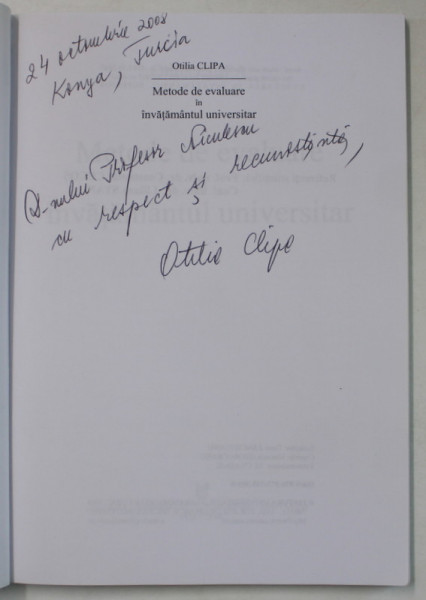 24 octombrie 2008
Konya, Turcia
Otilia CLIPA
Metode de evaluare
în
învățământul universitar
D-nului Profesor Niculescu
cu respect și recunoștință,
Otilia Clipa